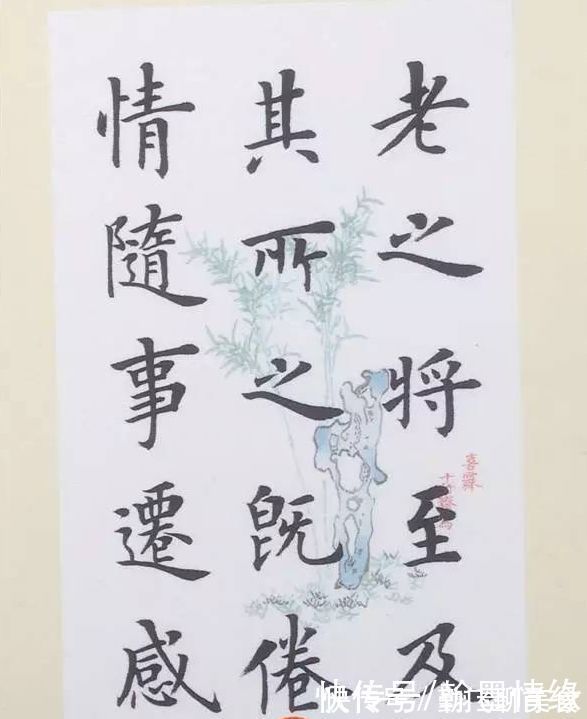 老之将至及
其所之既倦
情隨事遷感
快传号/翰墨情缘